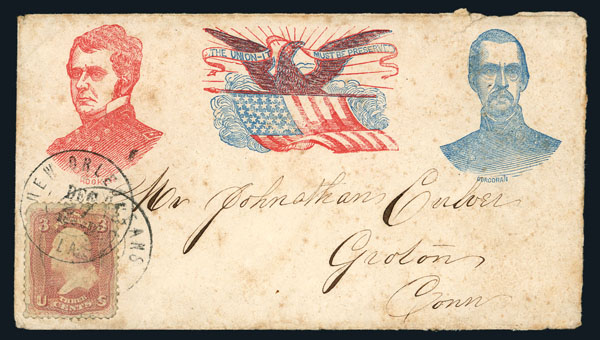 THE UNION-IT MUST BE PRESERVED
HOOKER
CORCORAN
NEW ORLEANS
DEC
LA.
Mr Johnathan Culver
Groton
Conn
3 3
U THREE CENTS S